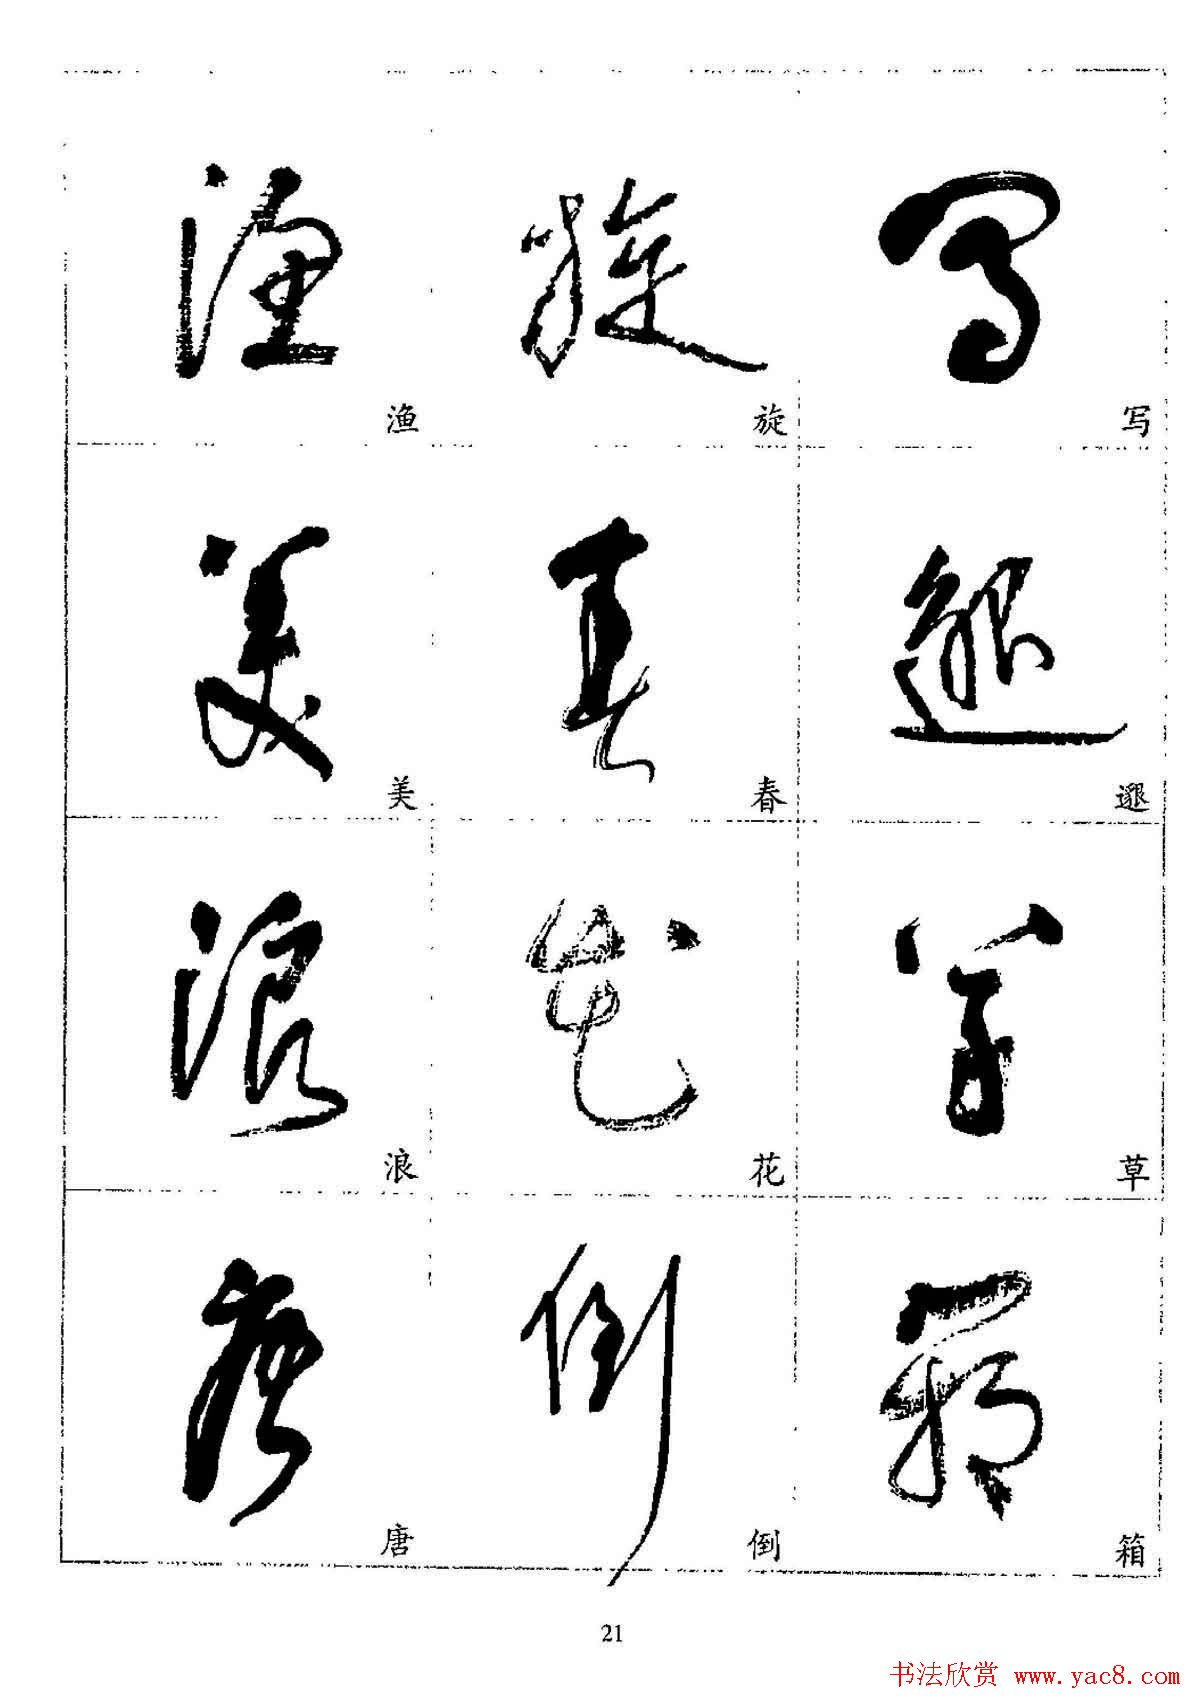 渔 旋 写
美 春 邈
浪 花 草
唐 倒 箱
21
书法欣赏 www.yac8.com